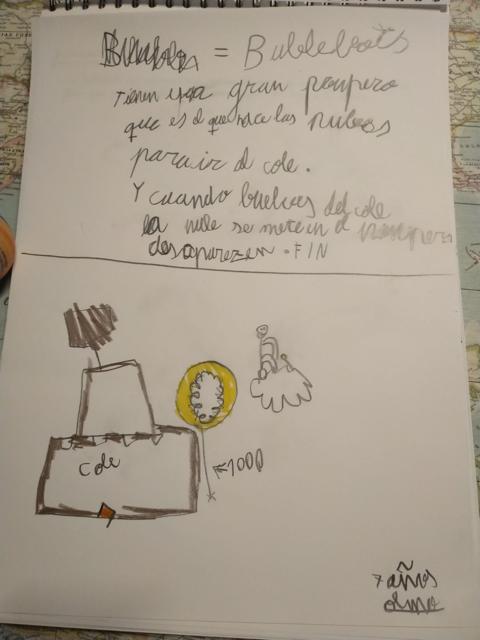 = Bublebots
Tienen una gran pompero
que es el que hace las nubes
para ir al cole.
Y cuando buelvas del cole
la nube se mete en el pompero
desaparezen. FIN
Cole
1000
7 años
olmo